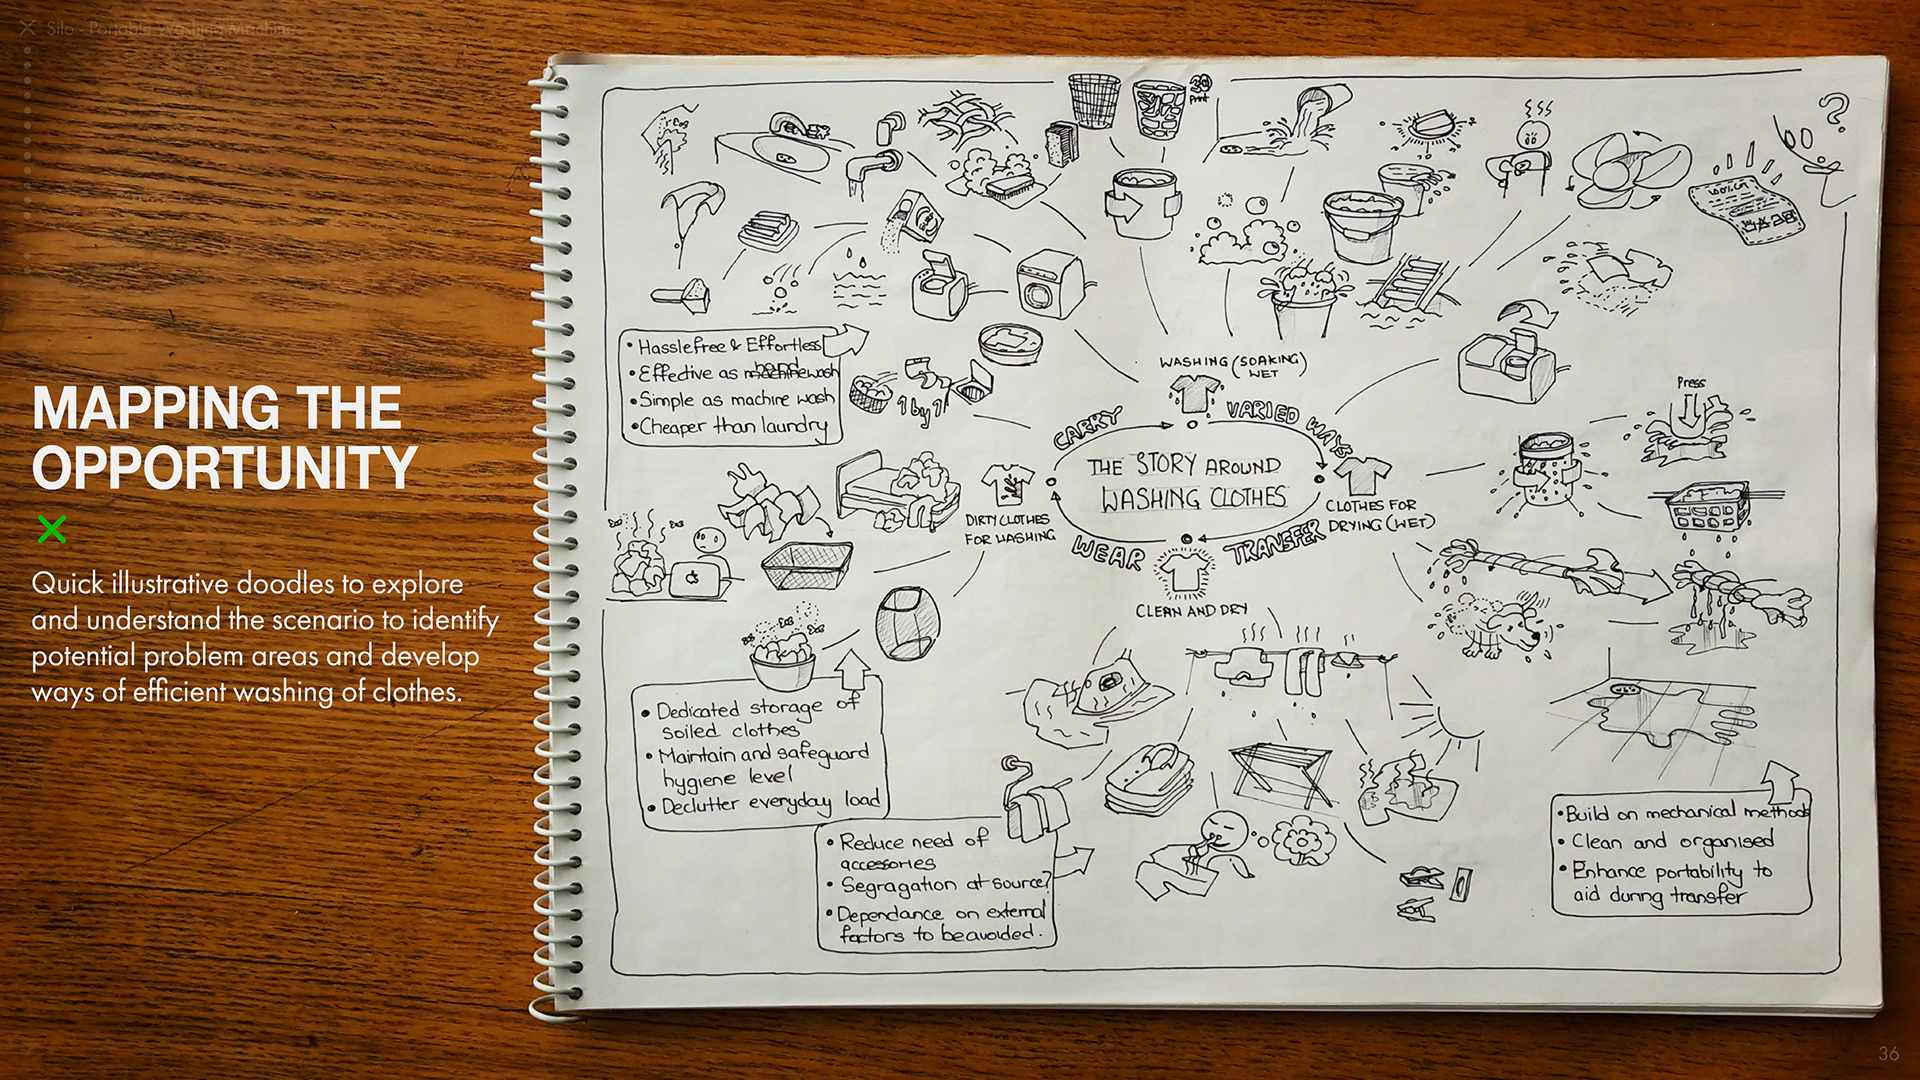 Silo - Portable Washing Machine
MAPPING THE
OPPORTUNITY
Quick illustrative doodles to explore
and understand the scenario to identify
potential problem areas and develop
ways of efficient washing of clothes.
Print
?
• Hasslefree & Effortless
hand
• Effective as machinewash
• Simple as machine wash
• Cheaper than laundry
1 by 1
WASHING (SOAKING)
WET
CARRY
VARIED WAYS
THE STORY AROUND
WASHING CLOTHES
DIRTY CLOTHES
FOR WASHING
CLOTHES FOR
DRYING (WET)
WEAR
TRANSFER
CLEAN AND DRY
Press
• Dedicated storage of
soiled clothes
• Maintain and safeguard
hygiene level
• Declutter everyday load
• Reduce need of
accessories
• Segragation at source?
• Dependance on external
factors to be avoided.
• Build on mechanical methods
• Clean and organised
• Enhance portability to
aid during transfer
36